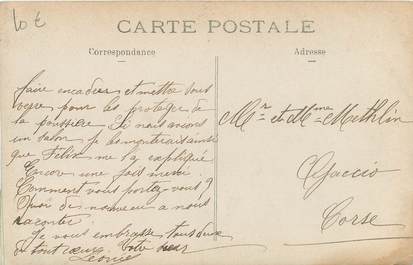 10 €
CARTE POSTALE
Correspondance
Adresse
faire encadrer et mettre sous
verre pour les protéger de
la poussière Si nous avions
un salon je les monterais ainsi
que Félix me l'a expliqué
Encore une fois merci.
Comment vous portez vous ?
Quoi de nouveau a nous
raconter.
Je vous embrasse tous deux
de tout cœur. Votre
Léonie
Mr et Mme
Ajaccio
Corse